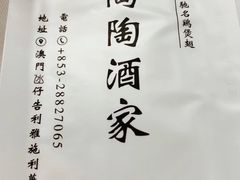 馳名鷄煲翅
陶陶酒家
電話 +853-28827065
地址 澳門氹仔告利雅施利